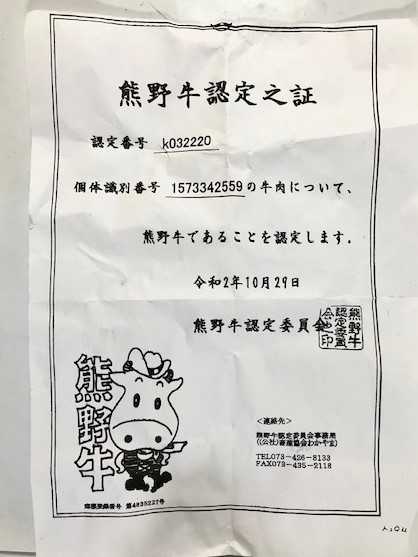 熊野牛認定之証
認定番号 k032220
個体識別番号 1573342559の牛肉について、
熊野牛であることを認定します.
令和2年10月29日
熊野牛認定委員会
熊野牛
認定委員
会之印
熊野牛
<連絡先>
熊野牛認定委員会事務局
((公社)畜産協会わかやま)
TEL073-426-8133
FAX073-435-2118
商標登録番号 第4835227号